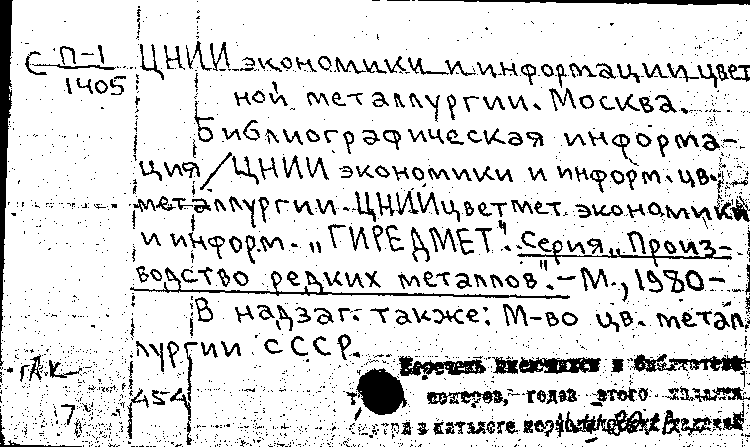 С П-1 ЦНИИ экономики и информации цвет
1405
ной металлургии. Москва.
Библиографическая информа-
ция / ЦНИИ экономики и информ. цв.
металлургии. ЦНИИцветмет экономики
и информ. „ГИРЕДМЕТ". Серия „Произ-
водство редких металлов". – М., 1980 –
В надзаг. также: М-во цв. метал
лургии СССР.
Перечень имеющихся в библиотеке
номеров, годов этого издания
в каталоге
454
7